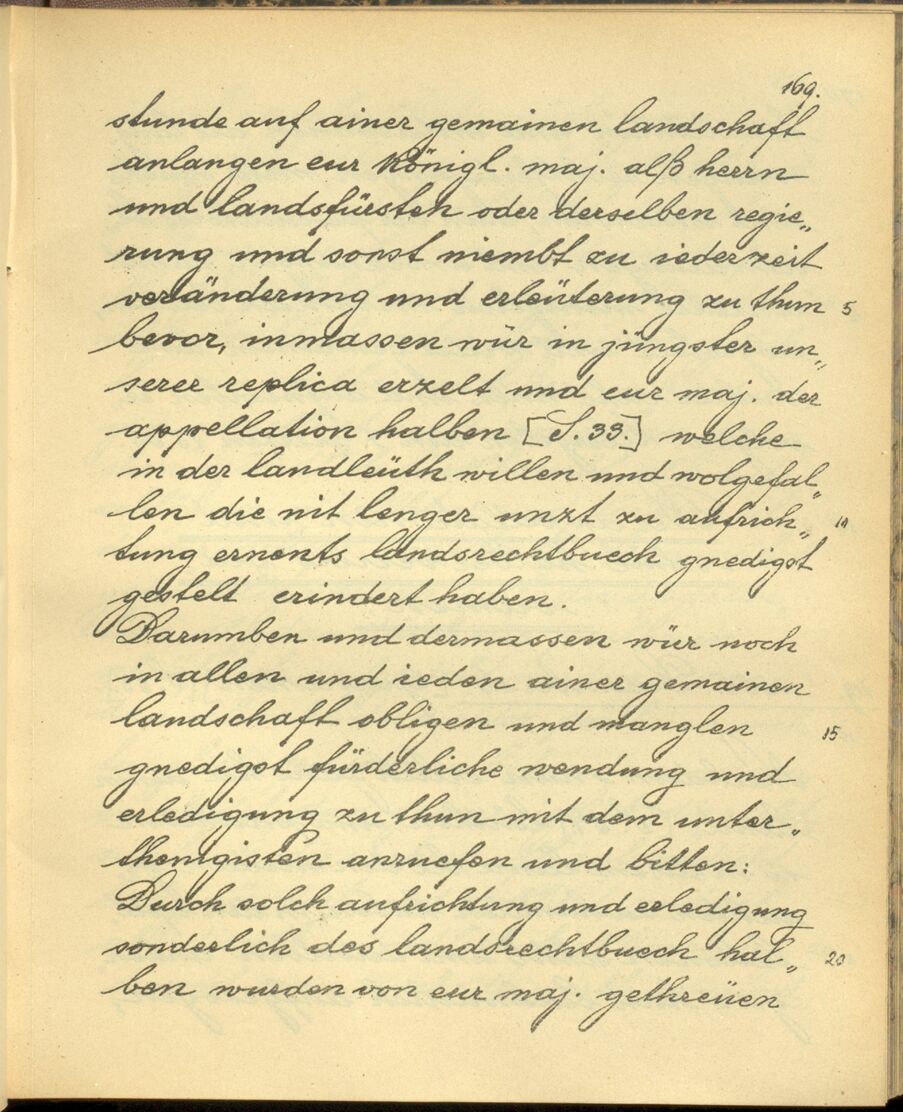 169.
stunde auf ainer gemainen landschaft
anlangen eur königl. maj. alß herrn
und landsfürsten oder derselben regie„
rung und sonst niembt zu iederzeit
veränderung und erleüterung zu thun 5
bevor, inmassen wür in jüngster un„
serer replica erzelt und eur maj. der
appellation halben [S. 33.] welche
in der landleüth willen und wolgefal„
len die nit lenger unzt zu aufrich„ 10
tung ernents landsrechtbuech gnedigst
gestelt erindert haben.
Darumben und dermassen wür noch
in allen und ieden ainer gemainen
landschaft obligen und manglen 15
gnedigst fürderliche wendung und
erledigung zu thun mit dem unter„
thenigisten anruefen und bitten:
Durch solch aufrichtung und erledigung
sonderlich des landsrechtbuech hal„ 20
ben wurden von eur maj. gethreüen